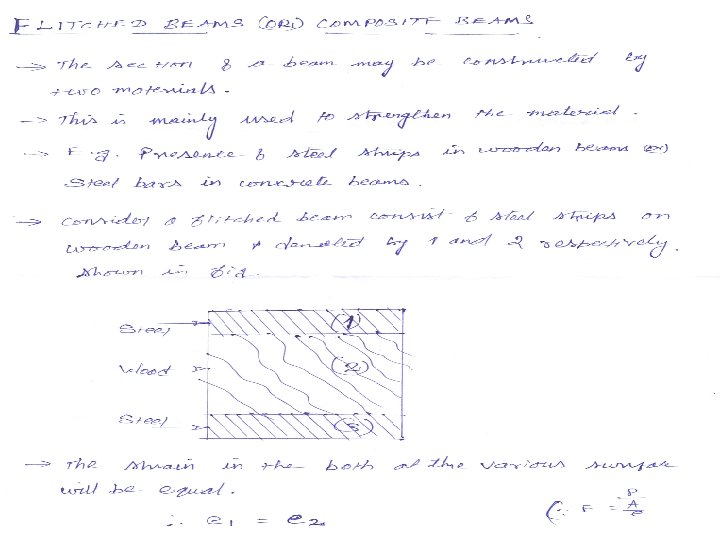 FLITCHED BEAMS (OR) COMPOSITE BEAMS
→ The section of a beam may be constructed by
two materials.
→ This is mainly used to strengthen the material.
→ E.g. Presence of steel strips in wooden beams (or)
Steel bars in concrete beams.
→ Consider a flitched beam consist of steel strips on
wooden beam & denoted by 1 and 2 respectively.
shown in fig.
Steel
(1)
Wood
(2)
Steel
(3)
→ The strain in the both at the various surface
will be equal.
∴ e1 = e2
(∵ F = P/A/e